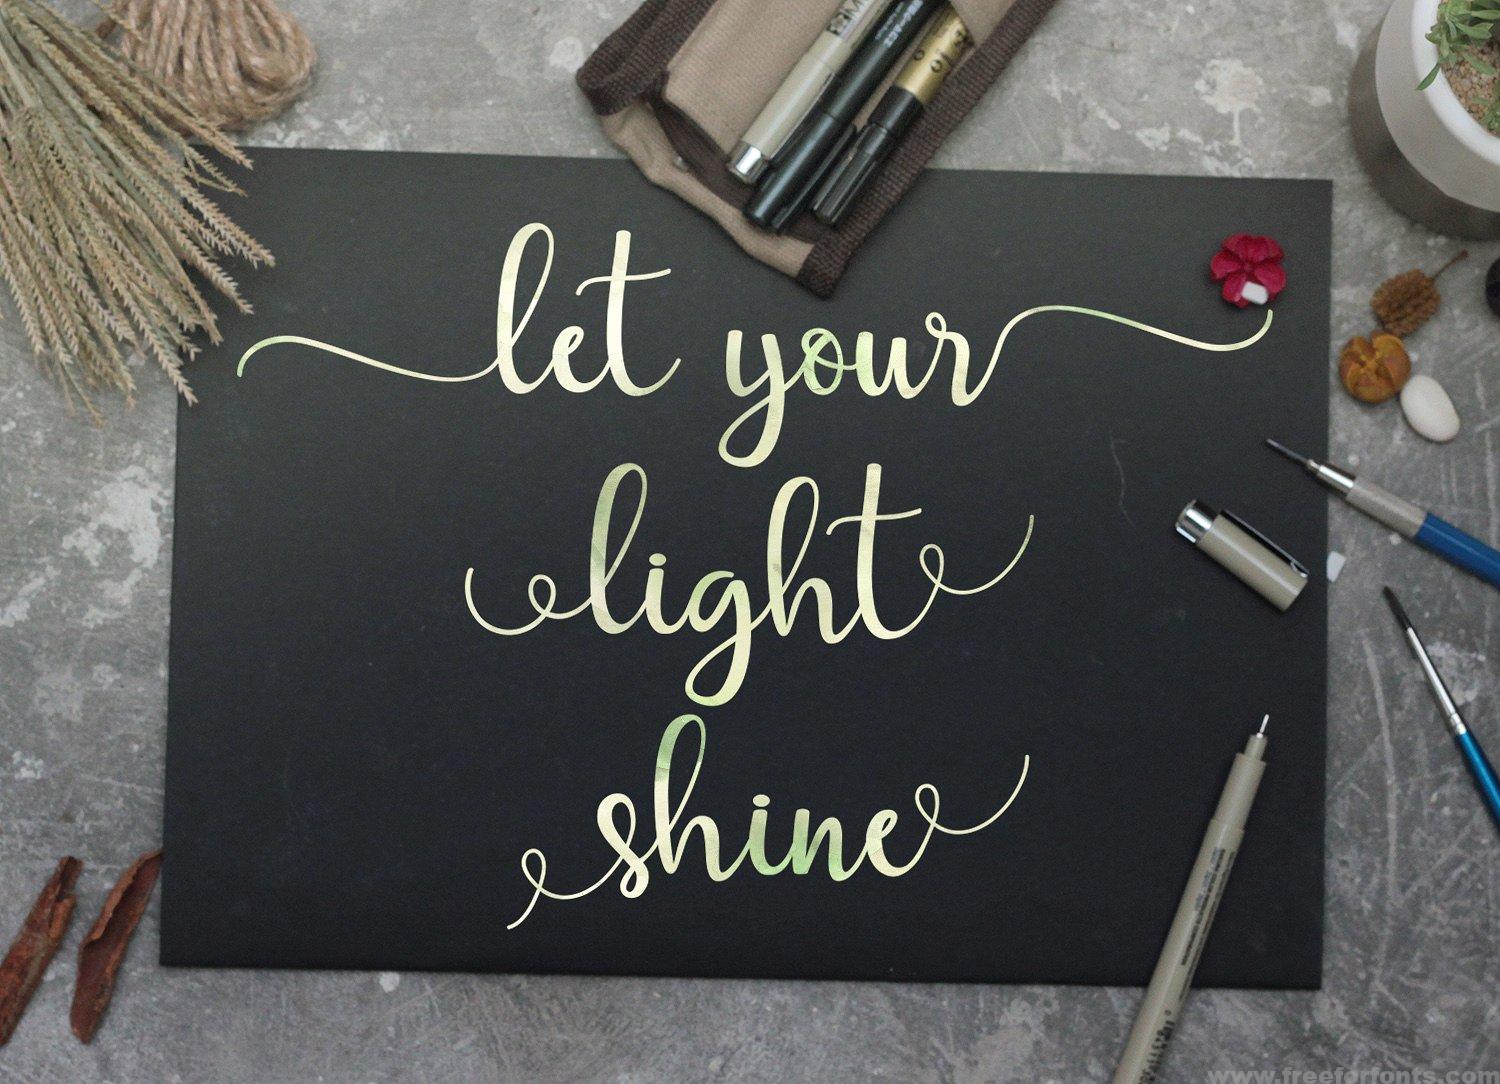 let your
light
shine
www.freeforfonts.com